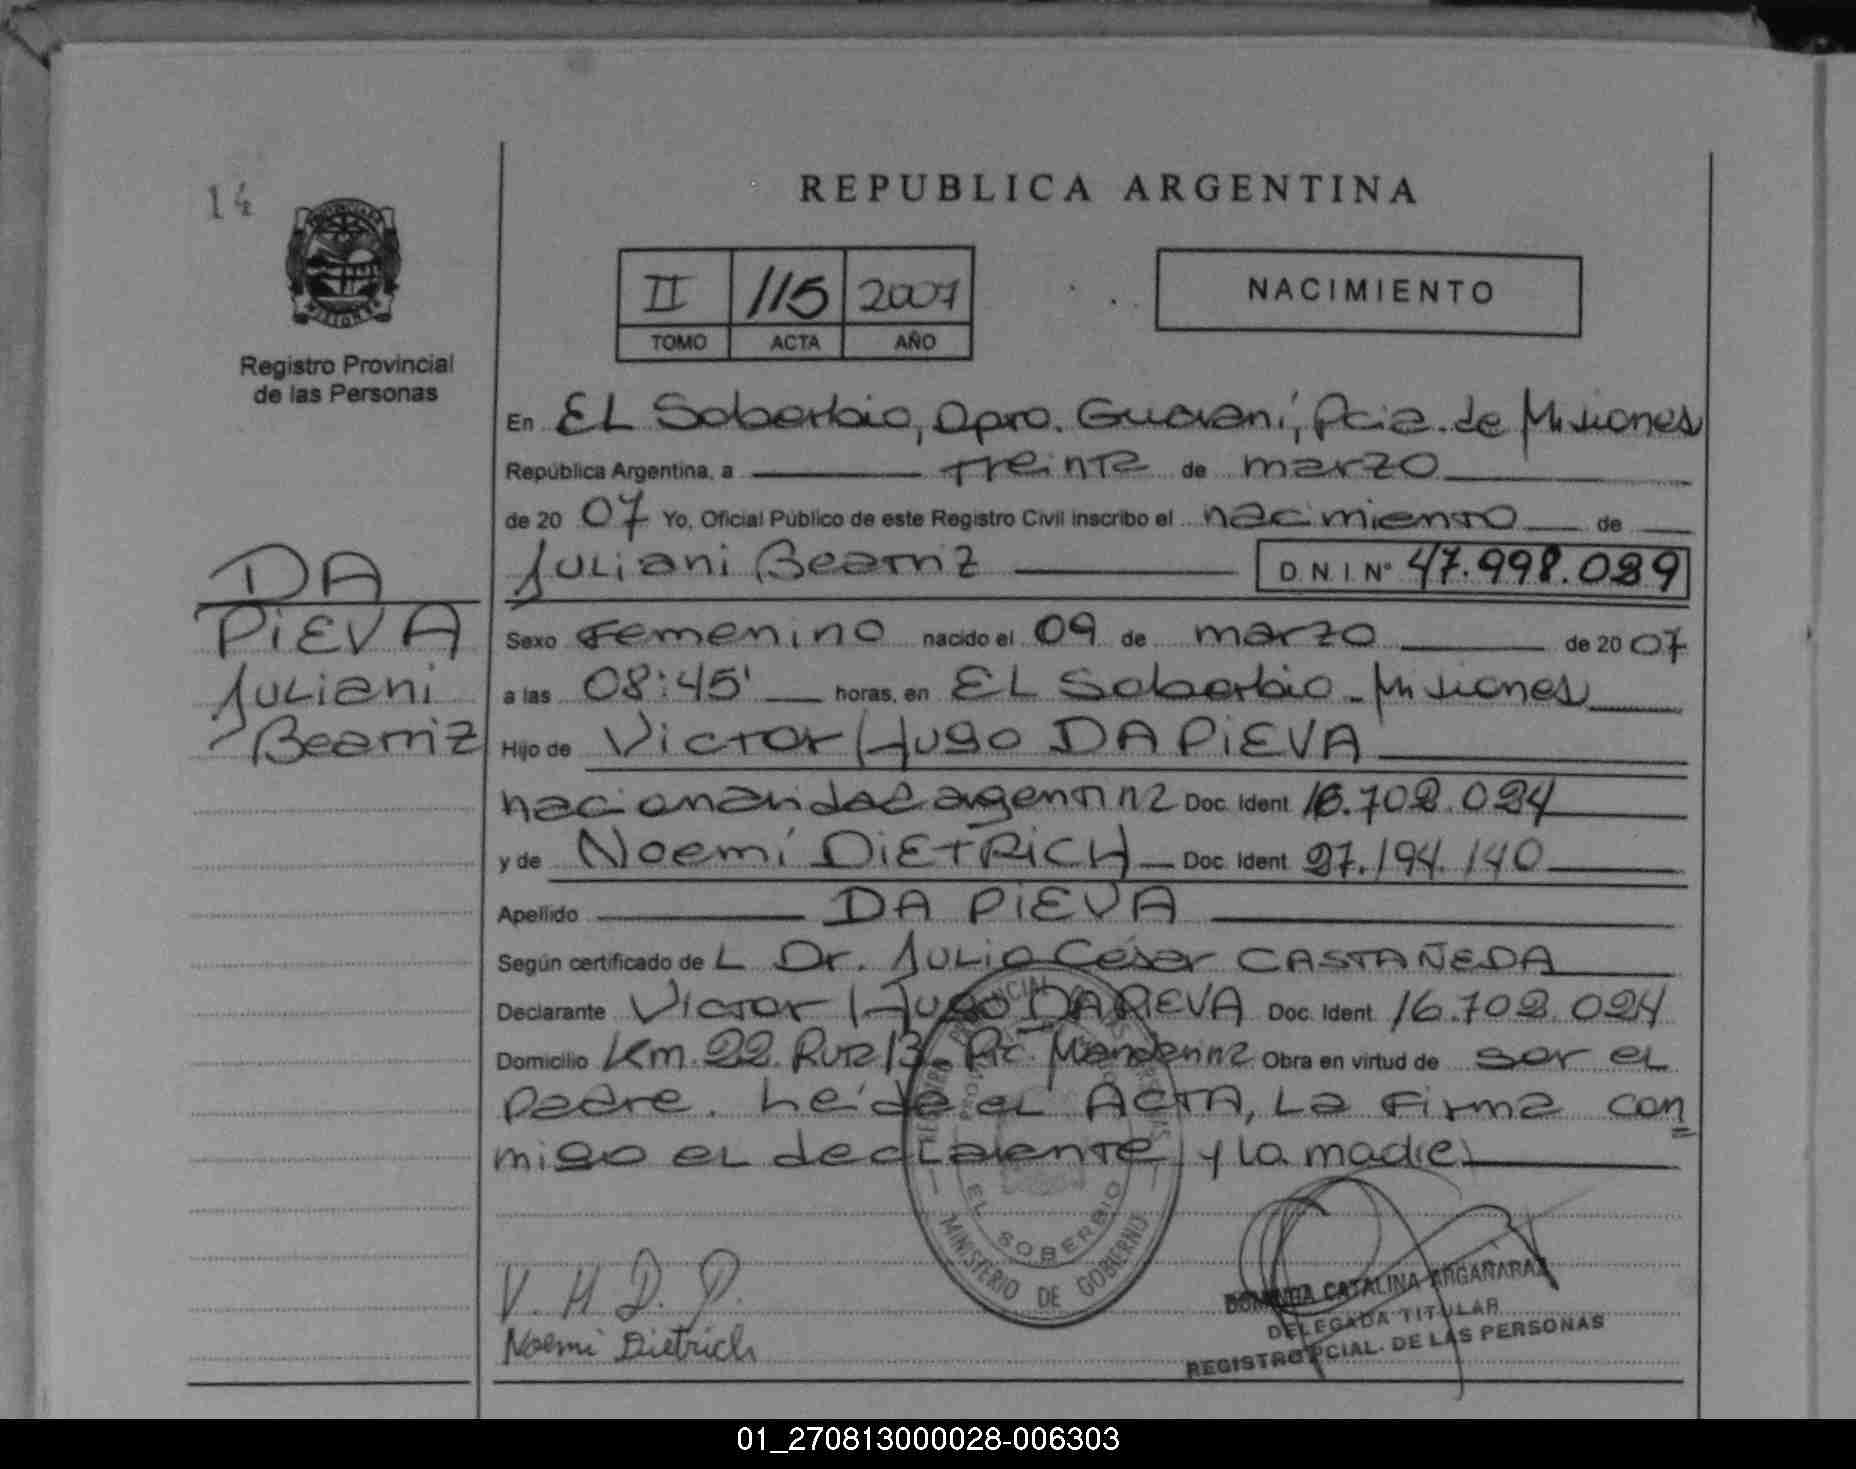 14
REPUBLICA ARGENTINA
II 115 2007
TOMO ACTA AÑO
NACIMIENTO
PROVINCIA DE
MISIONES
Registro Provincial
de las Personas
En EL Soberbio, Dpto. Guaraní, Pcia. de Misiones
República Argentina, a treinta de marzo
de 20 07 Yo, Oficial Público de este Registro Civil inscribo el nacimiento de
Juliani Beatriz D.N.I. N° 47.998.029
DA
PIEVA
Juliani
Beatriz
Sexo Femenino nacido el 09 de marzo de 20 07
a las 08:45' horas, en EL Soberbio - Misiones
Hijo de Victor Hugo DA PIEVA
nacionalidad argentina Doc. Ident. 16.702.024
y de Noemí DIETRICH Doc. Ident. 27.194.140
Apellido DA PIEVA
Según certificado de L Dr. Julio César CASTAÑEDA
Declarante Victor Hugo DA PIEVA Doc. Ident. 16.702.024
Domicilio Km. 22. Ruta 13. Pje. Mandarina Obra en virtud de ser el
padre. Leída el ACTA, La firma con
migo el declarante y la madre.
REGISTRO PROVINCIAL DE LAS PERSONAS
EL SOBERBIO
MINISTERIO DE GOBIERNO
V. H. D. P.
Noemi Dietrich
CATALINA ARGAÑARAZ
DELEGADA TITULAR
REGISTRO PCIAL. DE LAS PERSONAS
01_270813000028-006303